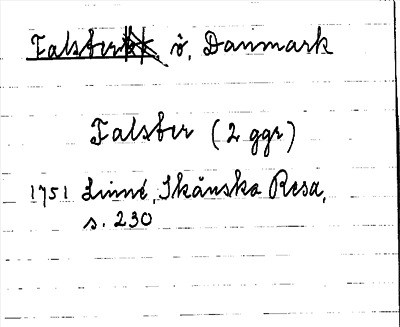 Falster, ö, Danmark
Falster (2 ggr)
1751 Linné, Skånska Resa,
s. 230